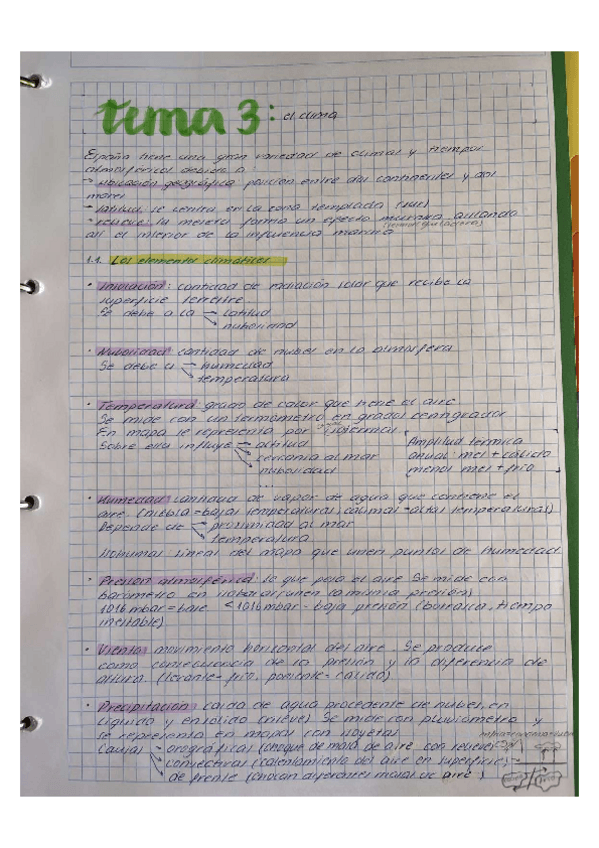 tema 3: el clima
España tiene una gran variedad de climas y tiempos
atmosféricos debido a
→ ubicación geográfica posición entre dos continentes y dos
mares
→ latitud se centra en la zona templada (sur)
→ relieve la meseta forma un efecto muralla aislando
así el interior de la influencia marina
1.1. Los elementos climáticos
• Insolación: cantidad de radiación solar que recibe la
superficie terrestre
Se debe a la → latitud
→ nubosidad
• Nubosidad cantidad de nubes en la atmósfera
Se debe a → humedad
→ temperatura
• Temperatura: grado de calor que tiene el aire
Se mide con un termómetro en grados centígrados
En mapa se representa por isotermas
Sobre ella influye → altitud
→ cercanía al mar
→ nubosidad
...
Amplitud térmica
anual: mes + cálido
menos mes + frío
• Humedad cantidad de vapor de agua que contiene el
aire. (niebla = bajas temperaturas, calima = altas temperaturas)
Depende de → proximidad al mar
→ temperatura
Isohumas líneas del mapa que unen puntos de humedad.
• Presión atmosférica: lo que pesa el aire Se mide con
barómetro en isobaras (unen la misma presión)
1016 mbar = base <1016 mbar - baja presión (borrasca, tiempo
inestable)
• Viento: movimiento horizontal del aire. Se produce
como consecuencia de la presión y la diferencia de
altura (levante = frío, poniente = cálido)
• Precipitación: caída de agua procedente de nubes, en
líquido y en sólido (nieve) Se mide con pluviómetro y
se representa en mapas con isoyetas
Causas → orográficas (choque de masa de aire con relieve)
→ convectivas (calentamiento del aire en superficie)
→ de frente (chocan diferentes masas de aire)